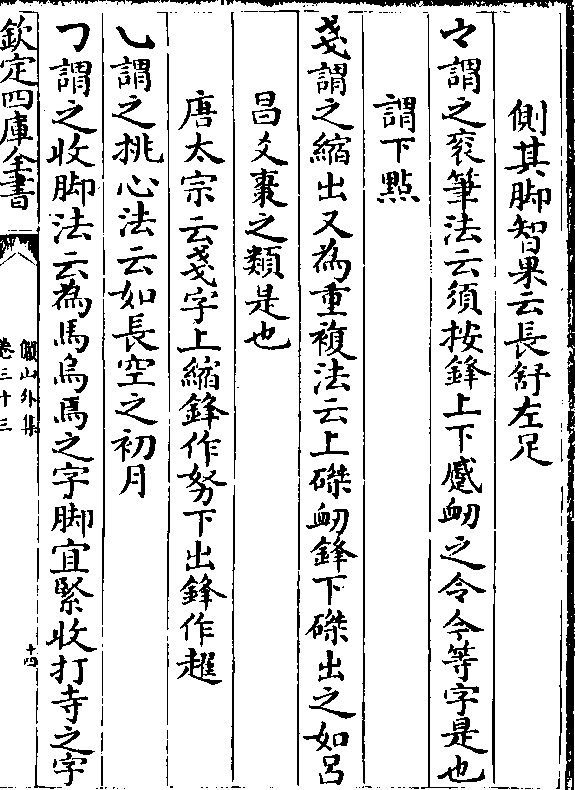 側其脚智果云長舒左足
㇇謂之衮筆法云須按鋒上下蹙衂之令今等字是也
謂下㸃
戔謂之縮出又為重複法云上磔衂鋒下磔出之如吕
昌爻棗之類是也
唐太宗云戔字上縮鋒作努下出鋒作趯
乚謂之挑心法云如長空之初月
㇆謂之收脚法云為馬烏焉之字脚宜緊收打寺之字
欽定四庫全書
儼山外集
卷三十三
十四